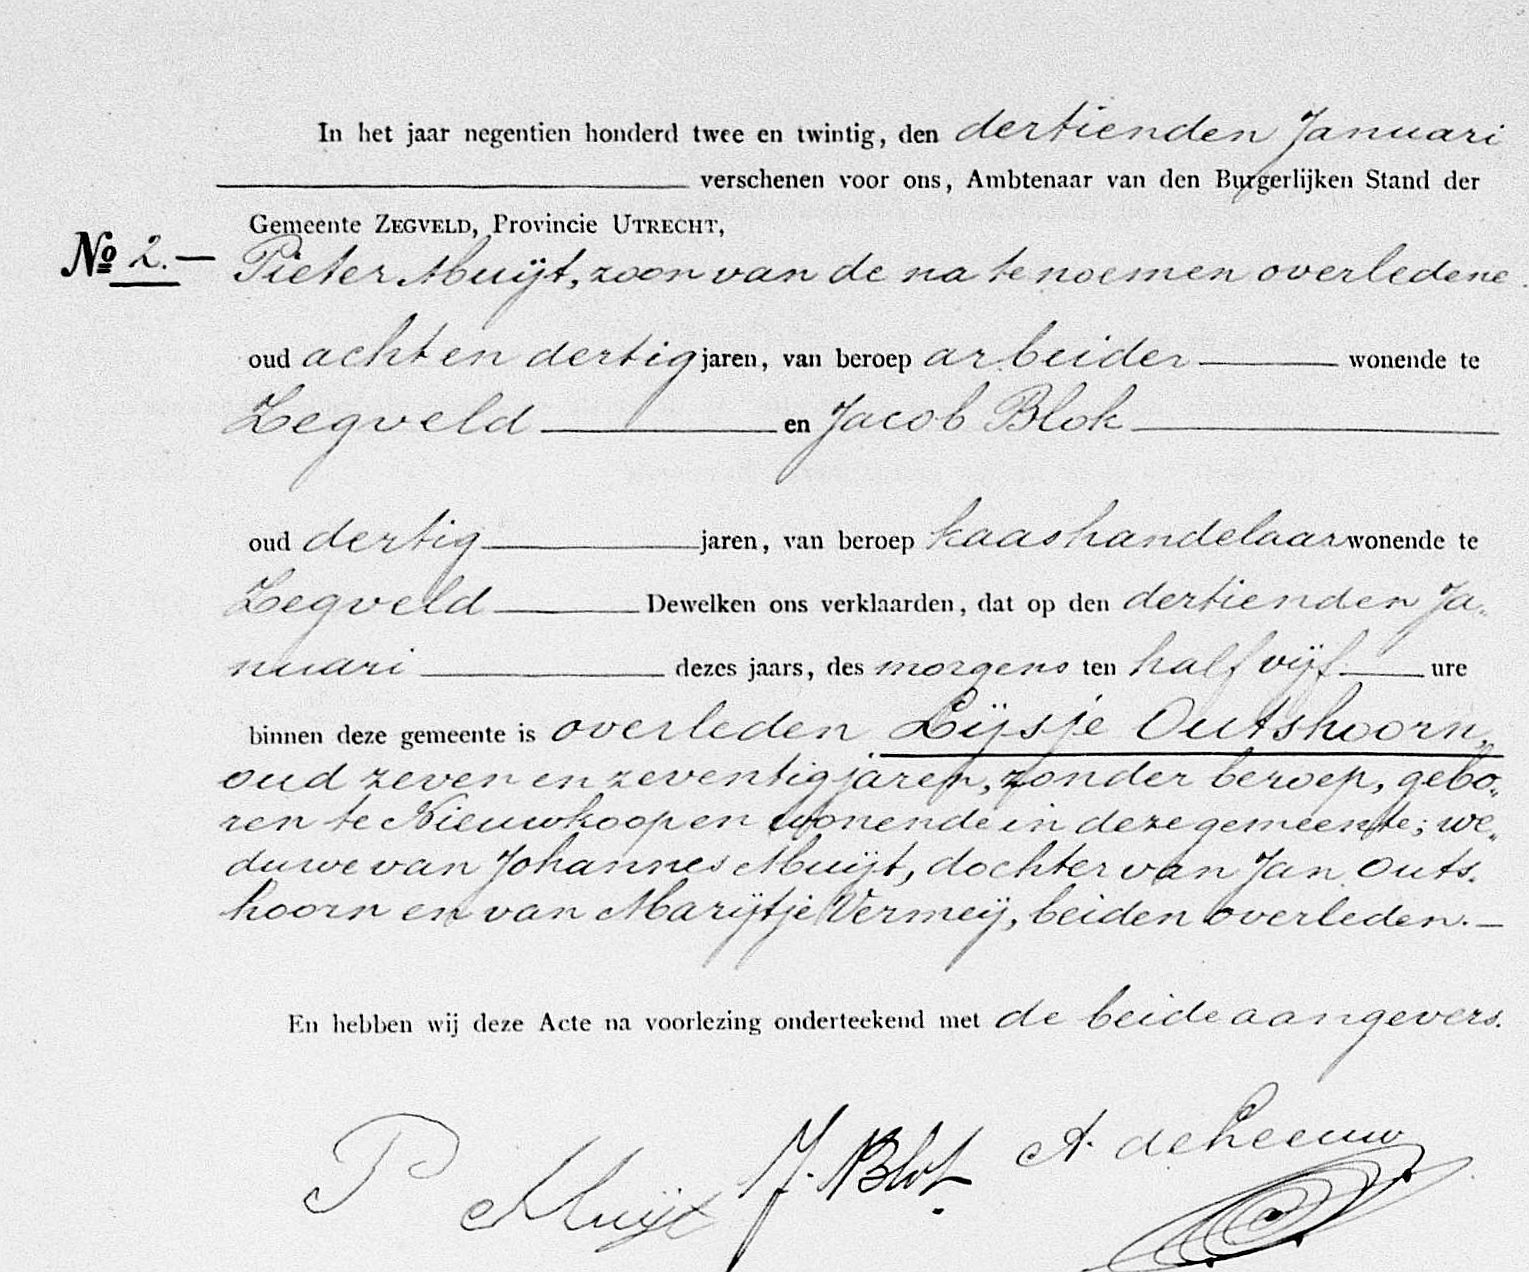 In het jaar negentien honderd twee en twintig, den dertienden Januari
verschenen voor ons, Ambtenaar van den Burgerlijken Stand der
Gemeente ZEGVELD, Provincie UTRECHT,
No 2.— Pieter Muijt, zoon van de na te noemen overledene
oud acht en dertig jaren, van beroep arbeider wonende te
Zegveld en Jacob Blok
oud dertig jaren, van beroep kaashandelaar wonende te
Zegveld Dewelken ons verklaarden, dat op den dertienden Ja„
nuari dezes jaars, des morgens ten half vijf ure
binnen deze gemeente is overleden Lijsje Outshoorn,
oud zeven en zeventig jaren, zonder beroep, gebo„
ren te Nieuwkoop en wonende in deze gemeente; we„
duwe van Johannes Muijt, dochter van Jan Outs„
hoorn en van Marijtje Vermeij, beiden overleden.—
En hebben wij deze Acte na voorlezing onderteekend met de beide aangevers.
P Muijt J. Blok A. de Leeuw